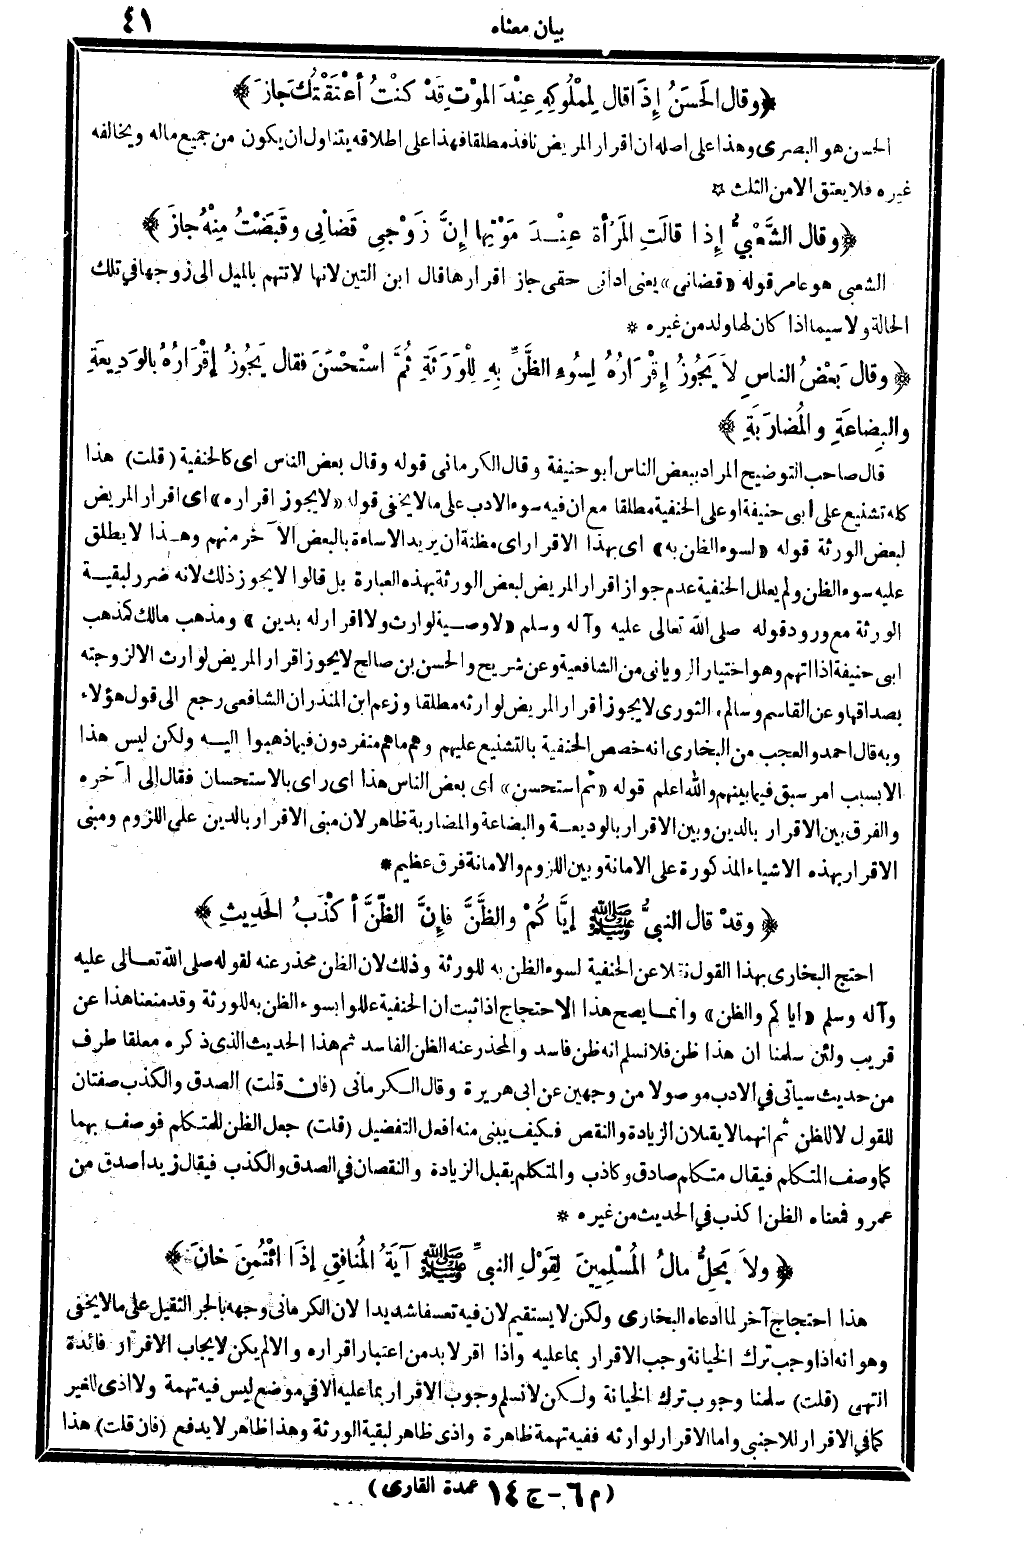 بيان معناه ٤١
﴿ وقال الحَسَنُ إِذَا قال لِمَمْلُوكِهِ عِنْدَ المَوْتِ قَدْ كُنْتُ أَعْتَقْتُكَ جازَ ﴾
الحسن هو البصرى وهذا على اصله ان اقرار المريض نافذ مطلقا فهذا على اطلاقه يتناول ان يكون من جميع ماله ويخالفه
غيره فلا يعتق الا من الثلث ☆
﴿ وقال الشَّعْبِيُّ إِذَا قالَتِ المَرْأَة عِنْدَ مَوْتِها إِنَّ زَوْجِى قَضانِى وقَبَضْتُ مِنْهُ جازَ ﴾
الشعبى هو عامر قوله «قضانى» يعنى ادانى حقى جاز اقرارها قال ابن التين لانها لاتتهم بالميل الى زوجها فى تلك
الحالة ولا سيما اذا كان لها ولد من غيره *
﴿ وقال بَعْضُ الناسِ لاَ يَجُوزُ إِقْرَارُهُ لِسُوءِ الظَّنِّ بِهِ لِلْوَرَثَةِ ثُمَّ اسْتَحْسَنَ فقال يَجُوزُ إِقْرَارُهُ بالوَدِيعَةِ
والبِضاعَةِ والمُضارَبَةِ ﴾
قال صاحب التوضيح المراد ببعض الناس أبو حنيفة وقال الكرمانى قوله وقال بعض الناس اى كالحنفية (قلت) هذا
كله تشنيع على أبى حنيفة او على الحنفية مطلقا مع ان فيه سوء الادب على مالا يخفى قوله «لايجوز اقراره» اى اقرار المريض
لبعض الورثة قوله «لسوء الظن به» اى بهذا الاقرار اى مظنة ان يريد الاساءة بالبعض الآخر منهم وهذا لا يطلق
عليه سوء الظن ولم يعلل الحنفية عدم جواز اقرار المريض لبعض الورثة بهذه العبارة بل قالوا لا يجوز ذلك لانه ضرر لبقية
الورثة مع ورود قوله صلى الله تعالى عليه وآله وسلم «لاوصية لوارث ولا اقرار له بدين» ومذهب مالك كمذهب
ابى حنيفة اذا اتهم وهو اختيار الرويانى من الشافعية وعن شريح والحسن بن صالح لا يجوز اقرار المريض لوارث الا لزوجته
بصداقها وعن القاسم وسالم، الثورى لا يجوز اقرار المريض لوارثه مطلقا وزعم ابن المنذر ان الشافعى رجع الى قول هؤلاء
وبه قال احمد والعجب من البخارى انه خصص الحنفية بالتشنيع عليهم وهم ماهم منفردون فيما ذهبوا اليه ولكن ليس هذا
الا بسبب امر سبق فيما بينهم والله اعلم قوله «ثم استحسن» اى بعض الناس هذا اى راى بالاستحسان فقال إلى آخره
والفرق بين الاقرار بالدين وبين الاقرار بالوديعة والبضاعة والمضاربة ظاهر لان مبنى الاقرار بالدين على اللزوم ومبنى
الاقرار بهذه الاشياء المذكورة على الامانة وبين اللزوم والامانة فرق عظيم *
﴿ وقَدْ قال النبىُّ ﷺ إِيَّاكُمْ والظَّنَّ فإِنَّ الظَّنَّ أَكْذَبُ الحَدِيثِ ﴾
احتج البخارى بهذا القول نقلا عن الحنفية لسوء الظن به للورثة وذلك لان الظن محذر عنه لقوله صلى الله تعالى عليه
وآله وسلم «اياكم والظن» وانما يصح هذا الاحتجاج اذا ثبت ان الحنفية عللوا بسوء الظن به للورثة وقد منعنا هذا عن
قريب ولئن سلمنا ان هذا ظن فلا نسلم انه ظن فاسد والمحذر عنه الظن الفاسد ثم هذا الحديث الذى ذكره معلقا طرف
من حديث سيأتى فى الادب موصولا من وجهين عن ابى هريرة وقال الكرمانى (فان قلت) الصدق والكذب صفتان
للقول لا للظن ثم انهما لا يقبلان الزيادة والنقص فكيف يبنى منه افعل التفضيل (قلت) جعل الظن للمتكلم فوصف بهما
كما وصف المتكلم فيقال متكلم صادق وكاذب والمتكلم يقبل الزيادة والنقصان فى الصدق والكذب فيقال زيد اصدق من
عمرو فمعناه الظن اكذب فى الحديث من غيره *
﴿ ولاَ يَحِلُّ مالُ المُسْلِمِينَ لِقَوْلِ النبىِّ ﷺ آيَةُ المُنافِقِ إِذَا ائْتُمِنَ خانَ ﴾
هذا احتجاج آخر لما ادعاه البخارى ولكن لا يستقيم لان فيه تعسفا شديدا لان الكرمانى وجهه بالجر الثقيل على مالا يخفى
وهو انه اذا وجب ترك الخيانة وجب الاقرار بما عليه واذا اقر لابد من اعتبار اقراره والا لم يكن لايجاب الاقرار فائدة
انتهى (قلت) سلمنا وجوب ترك الخيانة ولكن لانسلم وجوب الاقرار بما عليه الا فى موضع ليس فيه تهمة ولا اذى للغير
كما فى الاقرار للاجنبى واما الاقرار لوارثه ففيه تهمة ظاهرة واذى ظاهر لبقية الورثة وهذا ظاهر لا يدفع (فان قلت) هذا
(م ٦ - ج ١٤ عمدة القارى)